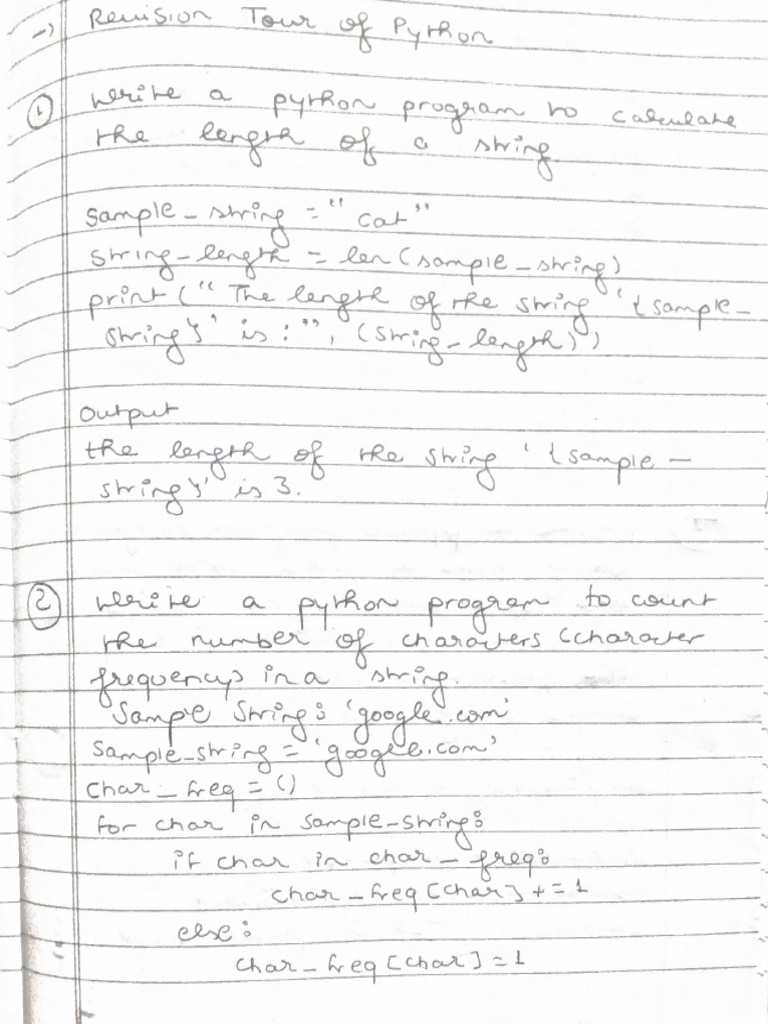 → Revision Tour of Python
① Write a python program to calculate
the length of a string
Sample_string = "cat"
string_length = len(sample_string)
print("The length of the string '{sample_
string}' is:", (string_length))
output
the length of the string '{sample_
string}' is 3.
② Write a python program to count
the number of characters (character
frequency) in a string.
Sample String: 'google.com'
Sample_string = 'google.com'
char_freq = {}
for char in sample_string:
if char in char_freq:
char_freq[char] += 1
else:
char_freq[char] = 1